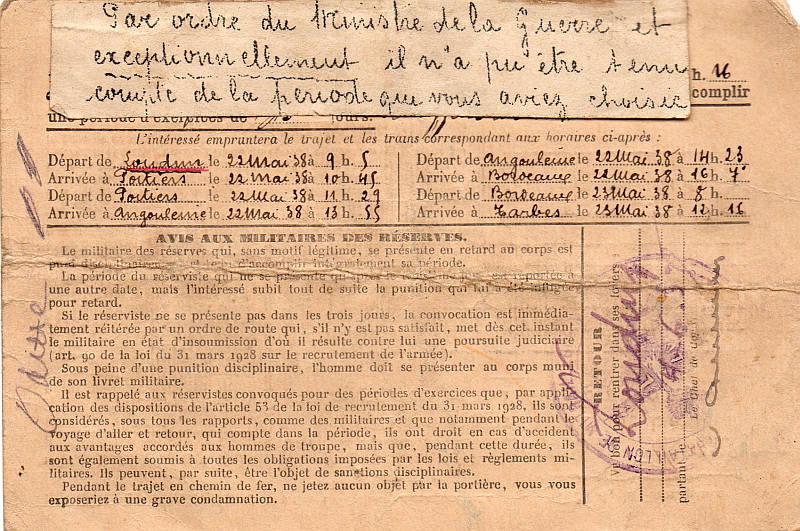 Par ordre du Ministre de la Guerre et
exceptionnellement il n'a pu être tenu
compte de la période que vous aviez choisie
h. 16
complir
une période d'exercices de jours.
L'intéressé empruntera le trajet et les trains correspondant aux horaires ci-après :
Départ de Loudun le 22 Mai 38 à 9 h. 5
Arrivée à Poitiers le 22 Mai 38 à 10 h. 45
Départ de Poitiers le 22 Mai 38 à 11 h. 29
Arrivée à Angouleme le 22 Mai 38 à 13 h. 55
Départ de Angouleme le 22 Mai 38 à 14 h. 23
Arrivée à Bordeaux le 22 Mai 38 à 16 h. 7
Départ de Bordeaux le 23 Mai 38 à 8 h.
Arrivée à Tarbes le 23 Mai 38 à 12 h. 16
AVIS AUX MILITAIRES DES RÉSERVES.
Le militaire des réserves qui, sans motif légitime, se présente en retard au corps est
puni disciplinairement et tenu d'accomplir intégralement sa période.
La période du réserviste qui ne se présente qu'après le est reportée à
une autre date, mais l'intéressé subit tout de suite la punition qui lui a été infligée
pour retard.
Si le réserviste ne se présente pas dans les trois jours, la convocation est immédia-
tement réitérée par un ordre de route qui, s'il n'y est pas satisfait, met dès cet instant
le militaire en état d'insoumission d'où il résulte contre lui une poursuite judiciaire
(art. 90 de la loi du 31 mars 1928 sur le recrutement de l'armée).
Sous peine d'une punition disciplinaire, l'homme doit se présenter au corps muni
de son livret militaire.
Il est rappelé aux réservistes convoqués pour des périodes d'exercices que, par appli-
cation des dispositions de l'article 53 de la loi de recrutement du 31 mars 1928, ils sont
considérés, sous tous les rapports, comme des militaires et que notamment pendant le
voyage d'aller et retour, qui compte dans la période, ils ont droit en cas d'accident
aux avantages accordés aux hommes de troupe, mais que, pendant cette durée, ils
sont également soumis à toutes les obligations imposées par les lois et règlements mi-
litaires. Ils peuvent, par suite, être l'objet de sanctions disciplinaires.
Pendant le trajet en chemin de fer, ne jetez aucun objet par la portière, vous vous
exposeriez à une grave condamnation.
RETOUR
pour rentrer dans ses foyers :
Loudun
partant le
Le Chef de Corps
BATAILLON